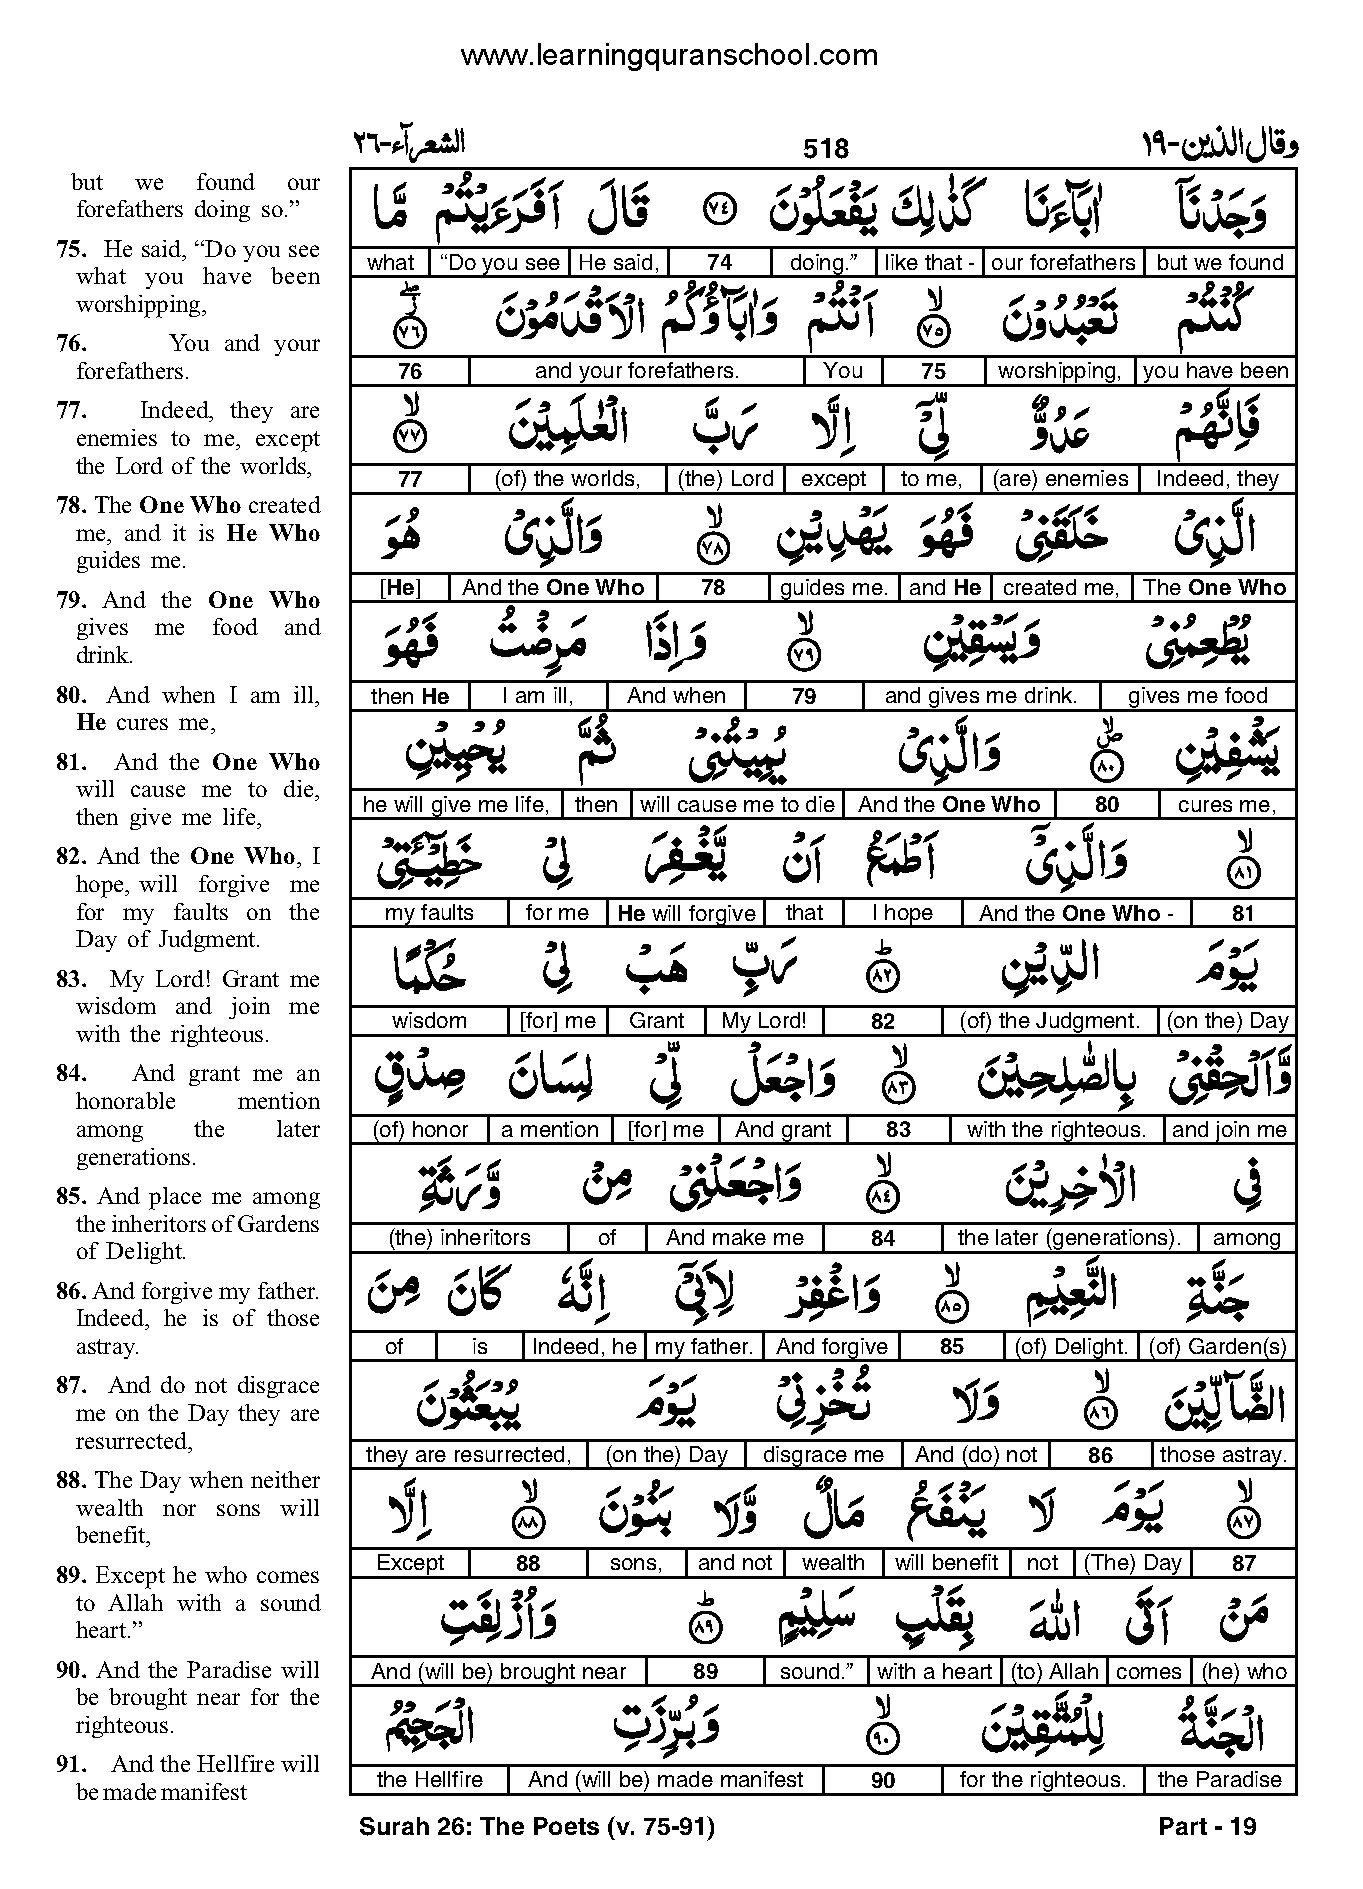 www.learningquranschool.com
وقال الذين-١٩
518
الشعرآء-٢٦
but we found our
forefathers doing so.”
75. He said, “Do you see
what you have been
worshipping,
76. You and your
forefathers.
77. Indeed, they are
enemies to me, except
the Lord of the worlds,
78. The One Who created
me, and it is He Who
guides me.
79. And the One Who
gives me food and
drink.
80. And when I am ill,
He cures me,
81. And the One Who
will cause me to die,
then give me life,
82. And the One Who, I
hope, will forgive me
for my faults on the
Day of Judgment.
83. My Lord! Grant me
wisdom and join me
with the righteous.
84. And grant me an
honorable mention
among the later
generations.
85. And place me among
the inheritors of Gardens
of Delight.
86. And forgive my father.
Indeed, he is of those
astray.
87. And do not disgrace
me on the Day they are
resurrected,
88. The Day when neither
wealth nor sons will
benefit,
89. Except he who comes
to Allah with a sound
heart.”
90. And the Paradise will
be brought near for the
righteous.
91. And the Hellfire will
be made manifest
وَجَدْنَآ اٰبَآءَنَا كَذٰلِكَ يَفْعَلُوْنَ ٧٤ قَالَ اَفَرَءَيْتُمْ مَّا
what “Do you see He said, 74 doing.” like that - our forefathers but we found
كُنْتُمْ تَعْبُدُوْنَ ٧٥ۙ اَنْتُمْ وَاٰبَآؤُكُمُ الْاَقْدَمُوْنَ ٧٦ۖ
76 and your forefathers. You 75 worshipping, you have been
فَاِنَّهُمْ عَدُوٌّ لِّيْٓ اِلَّا رَبَّ الْعٰلَمِيْنَ ٧٧ۙ
77 (of) the worlds, (the) Lord except to me, (are) enemies Indeed, they
الَّذِيْ خَلَقَنِيْ فَهُوَ يَهْدِيْنِ ٧٨ۙ وَالَّذِيْ هُوَ
[He] And the One Who 78 guides me. and He created me, The One Who
يُطْعِمُنِيْ وَيَسْقِيْنِ ٧٩ۙ وَاِذَا مَرِضْتُ فَهُوَ
then He I am ill, And when 79 and gives me drink. gives me food
يَشْفِيْنِ ٨٠ۙ وَالَّذِيْ يُمِيْتُنِيْ ثُمَّ يُحْيِيْنِ
he will give me life, then will cause me to die And the One Who 80 cures me,
٨١ۙ وَالَّذِيْٓ اَطْمَعُ اَنْ يَّغْفِرَ لِيْ خَطِيْٓئَتِيْ
my faults for me He will forgive that I hope And the One Who - 81
يَوْمَ الدِّيْنِ ٨٢ؕ رَبِّ هَبْ لِيْ حُكْمًا
wisdom [for] me Grant My Lord! 82 (of) the Judgment. (on the) Day
وَّاَلْحِقْنِيْ بِالصّٰلِحِيْنَ ٨٣ۙ وَاجْعَلْ لِّيْ لِسَانَ صِدْقٍ
(of) honor a mention [for] me And grant 83 with the righteous. and join me
فِي الْاٰخِرِيْنَ ٨٤ۙ وَاجْعَلْنِيْ مِنْ وَّرَثَةِ
(the) inheritors of And make me 84 the later (generations). among
جَنَّةِ النَّعِيْمِ ٨٥ۙ وَاغْفِرْ لِاَبِيْٓ اِنَّهٗ كَانَ مِنَ
of is Indeed, he my father. And forgive 85 (of) Delight. (of) Garden(s)
الضَّآلِّيْنَ ٨٦ۙ وَلَا تُخْزِنِيْ يَوْمَ يُبْعَثُوْنَ
they are resurrected, (on the) Day disgrace me And (do) not 86 those astray.
٨٧ۙ يَوْمَ لَا يَنْفَعُ مَالٌ وَّلَا بَنُوْنَ ٨٨ۙ اِلَّا
Except 88 sons, and not wealth will benefit not (The) Day 87
مَنْ اَتَى اللّٰهَ بِقَلْبٍ سَلِيْمٍ ٨٩ؕ وَاُزْلِفَتِ
And (will be) brought near 89 sound.” with a heart (to) Allah comes (he) who
الْجَنَّةُ لِلْمُتَّقِيْنَ ٩٠ۙ وَبُرِّزَتِ الْجَحِيْمُ
the Hellfire And (will be) made manifest 90 for the righteous. the Paradise
Surah 26: The Poets (v. 75-91) Part - 19